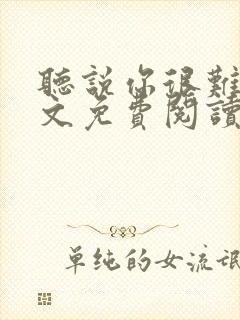 聽說你很難
文免費閱讀
單純的女流氓